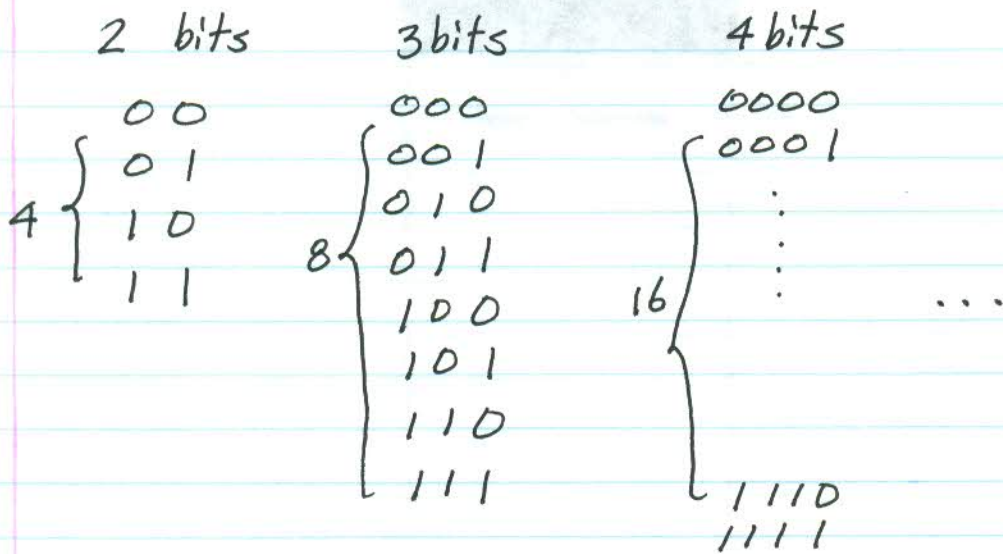 2 bits
00
4
01
10
11
3bits
000
8
001
010
011
100
101
110
111
4 bits
0000
16
0001
.
.
.
.
.
1110
1111
...